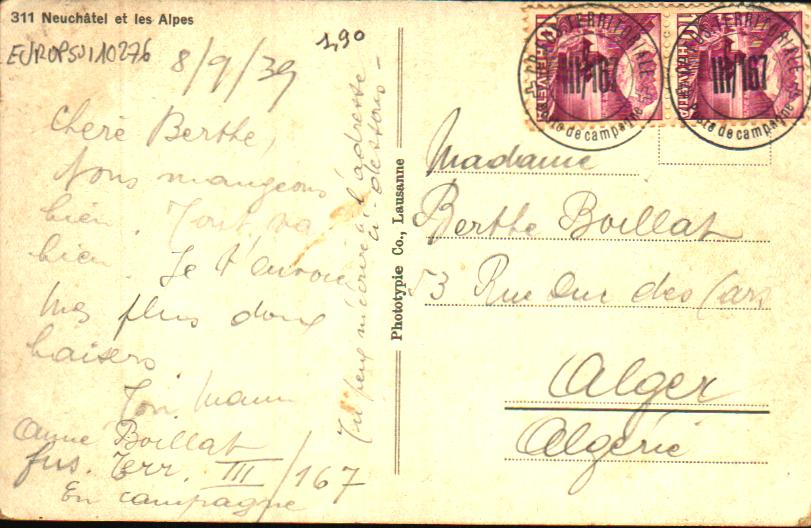 311 Neuchâtel et les Alpes
EUROPSUI10276
1,90
8/9/39
Chère Berthe,
Nous mangeons
bien. Tout va
bien. Je t'envoie
Mes plus doux
baisers
Ton
Boillat
fus. Terr. III/167
En campagne
Tu peux m'écrire à l'adresse
ci-dessous
Phototypie Co., Lausanne
TERRITORIALE
III/167
Poste de campagne
TERRITORIALE
III/167
Poste de campagne
Madame
Berthe Boillat
53 Rue des
Alger
Algérie